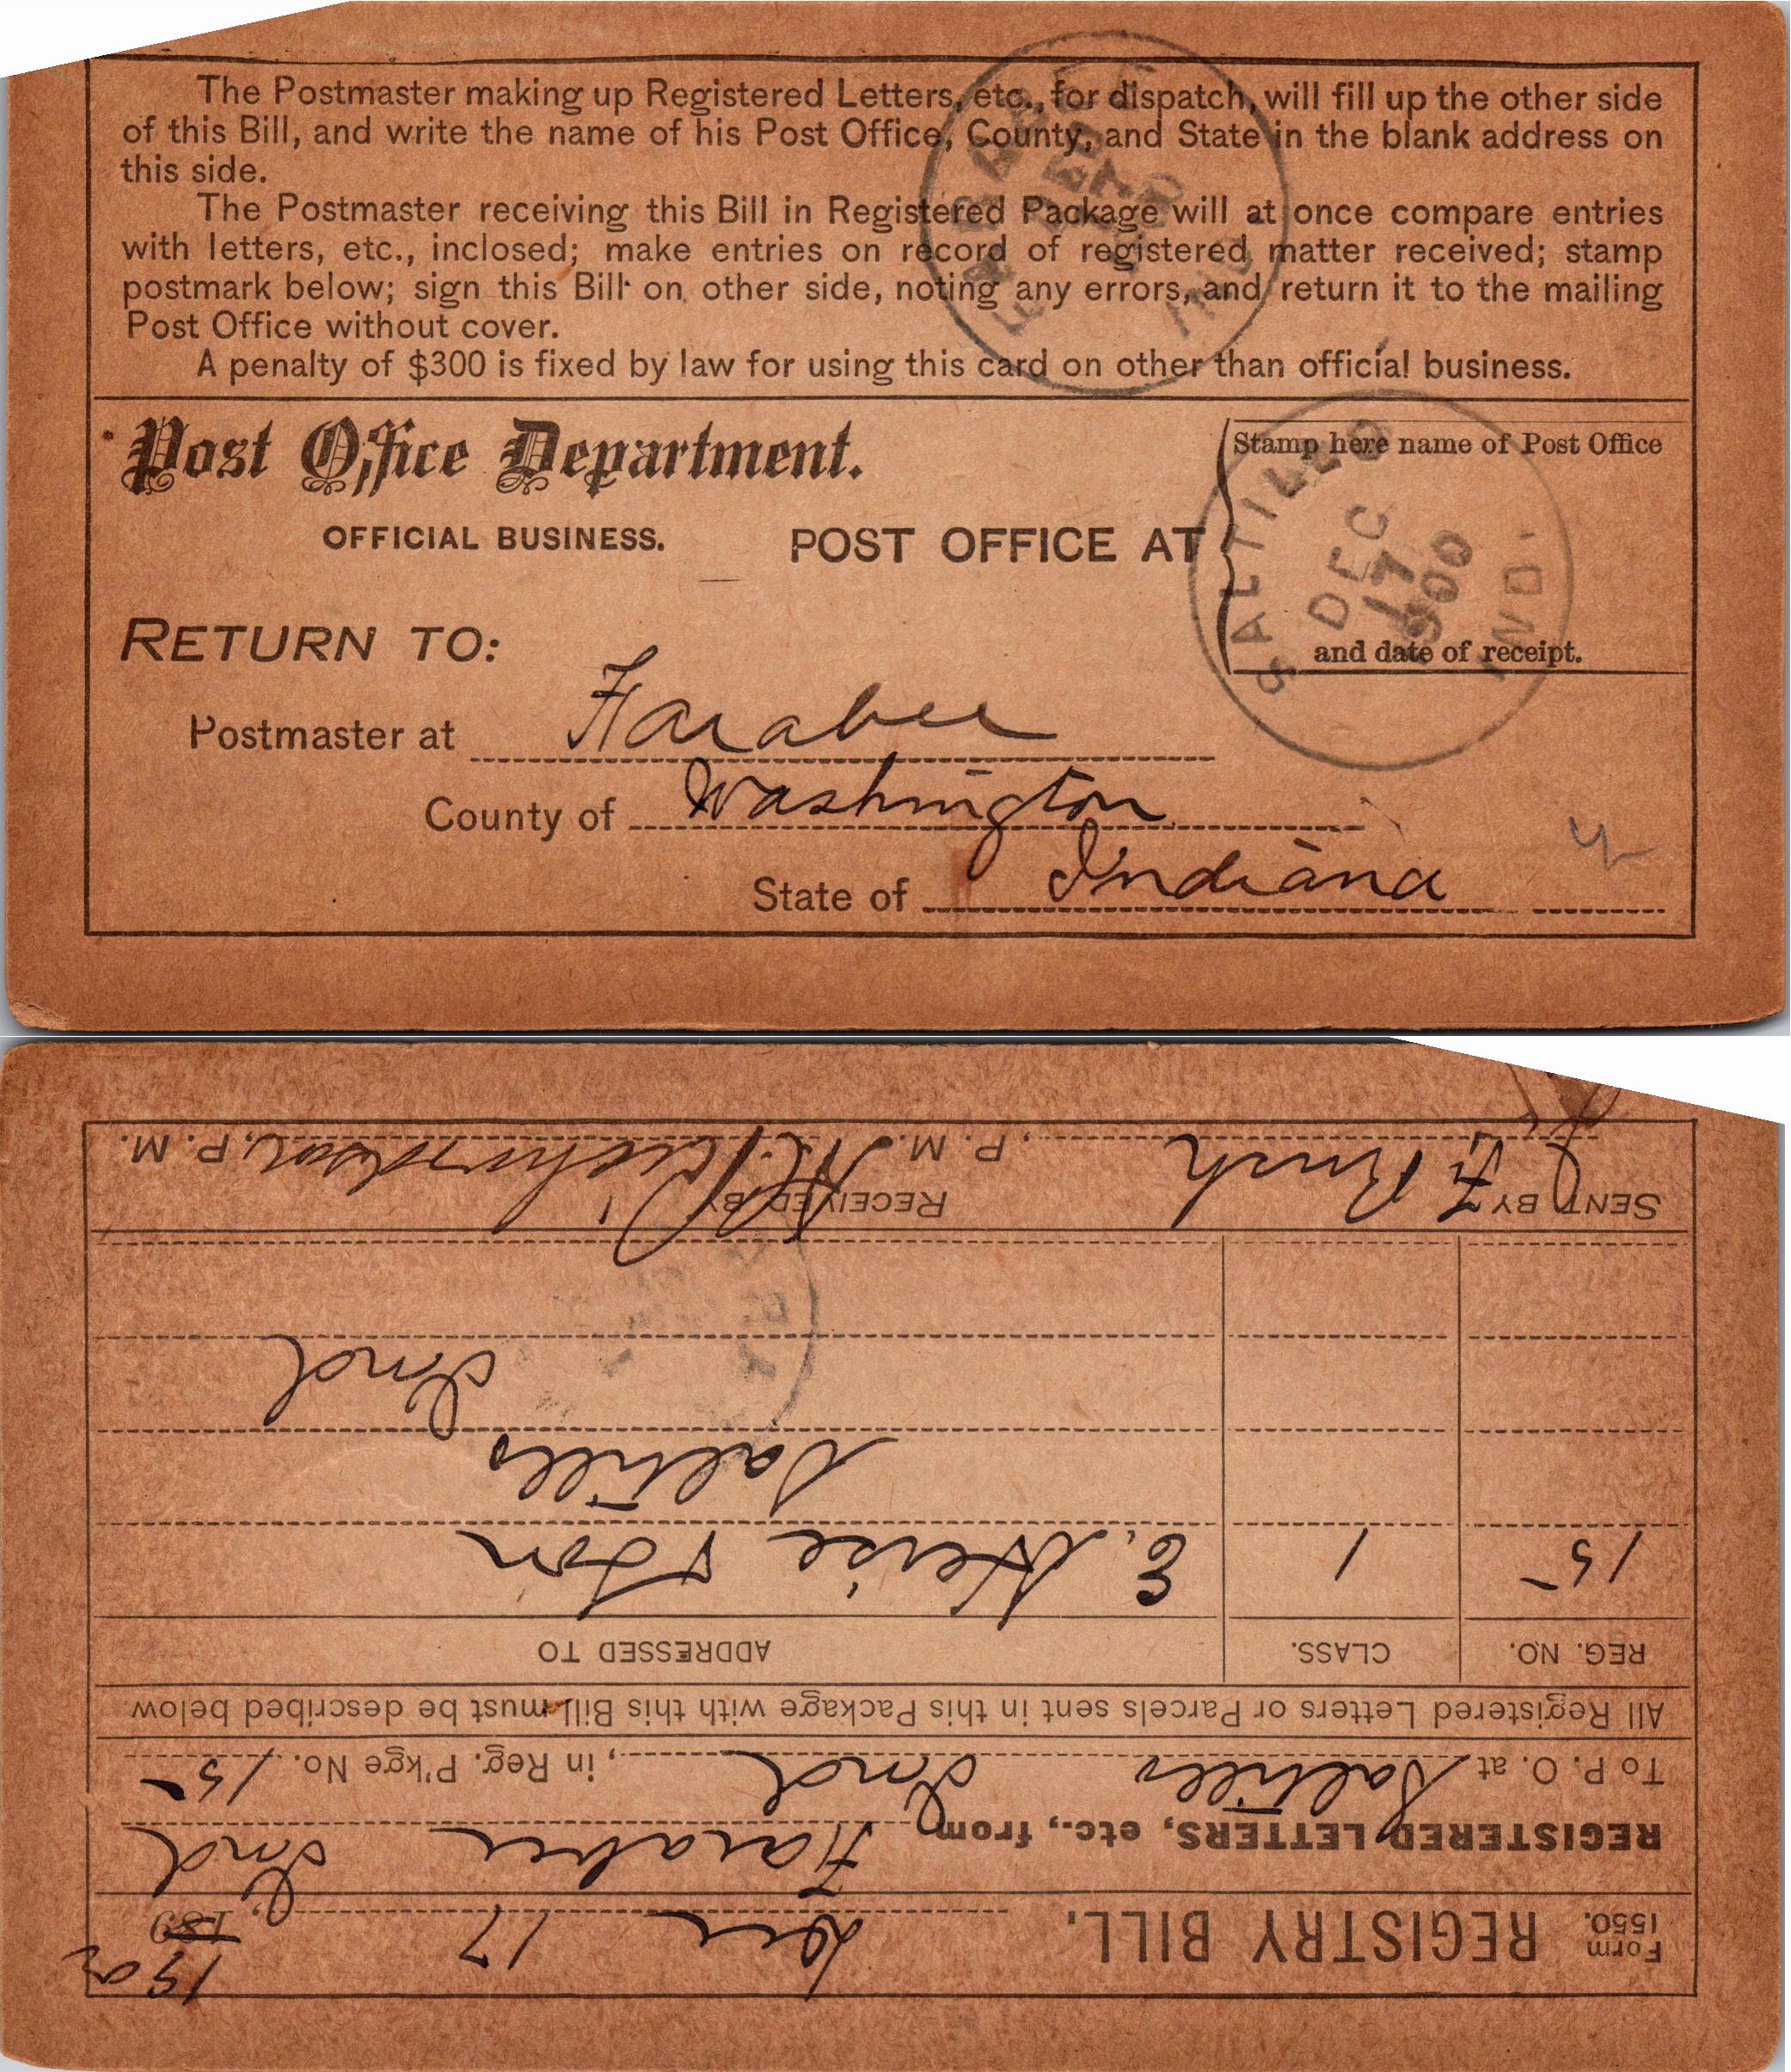 The Postmaster making up Registered Letters, etc., for dispatch, will fill up the other side
of this Bill, and write the name of his Post Office, County, and State in the blank address on
this side.
The Postmaster receiving this Bill in Registered Package will at once compare entries
with letters, etc., inclosed; make entries on record of registered matter received; stamp
postmark below; sign this Bill on other side, noting any errors, and return it to the mailing
Post Office without cover.
A penalty of $300 is fixed by law for using this card on other than official business.
Post Office Department.
OFFICIAL BUSINESS.
POST OFFICE AT
Stamp here name of Post Office
and date of receipt.
SALTILLO IND.
DEC
17
1900
RETURN TO:
Postmaster at Farabee
County of Washington
State of Indiana
Form 1550. REGISTRY BILL. Dec 17, 189
1900
REGISTERED LETTERS, etc., from Farabee Ind
To P. O. at Saltillo Ind, in Reg. P'kge No. 15
All Registered Letters or Parcels sent in this Package with this Bill must be described below
REG. NO. CLASS. ADDRESSED TO
15 1 E. Heise & Son
Saltillo
Ind
SENT BY RECEIVED BY
F. Rush, P. M. Richardson, P. M.